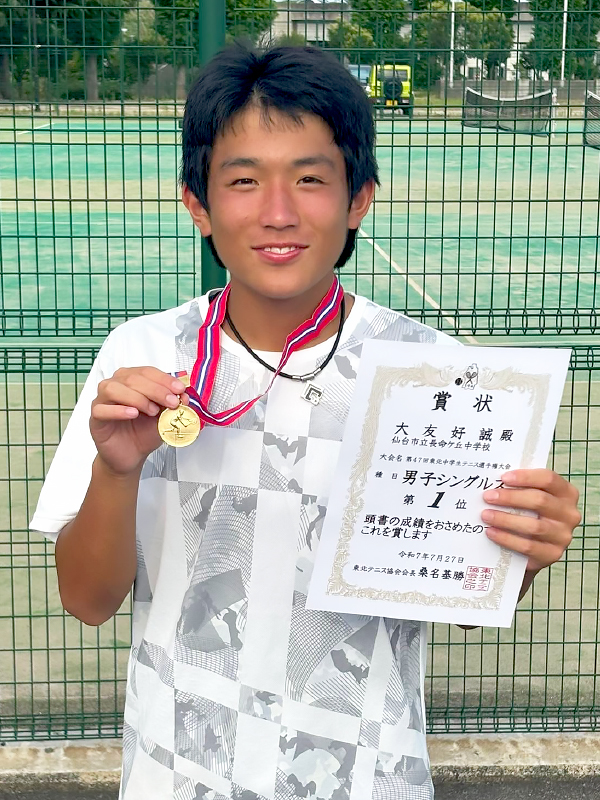 賞状
大友好誠殿
仙台市立長命ケ丘中学校
大会名 第47回東北中学生テニス選手権大会
種目 男子シングルス
第1位
頭書の成績をおさめたの
これを賞します
令和7年7月27日
東北テニス協会会長 桑名基勝